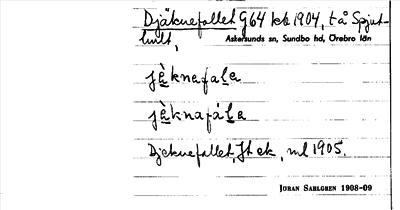 Djäknefallet G64 kb 1904, t å Spjut-
hult,
Askersunds sn, Sundbo hd, Örebro län
jèknafala
jèknafála
Djeknefallet, Jt ek, ml 1905.
JÖRAN SAHLGREN 1908-09